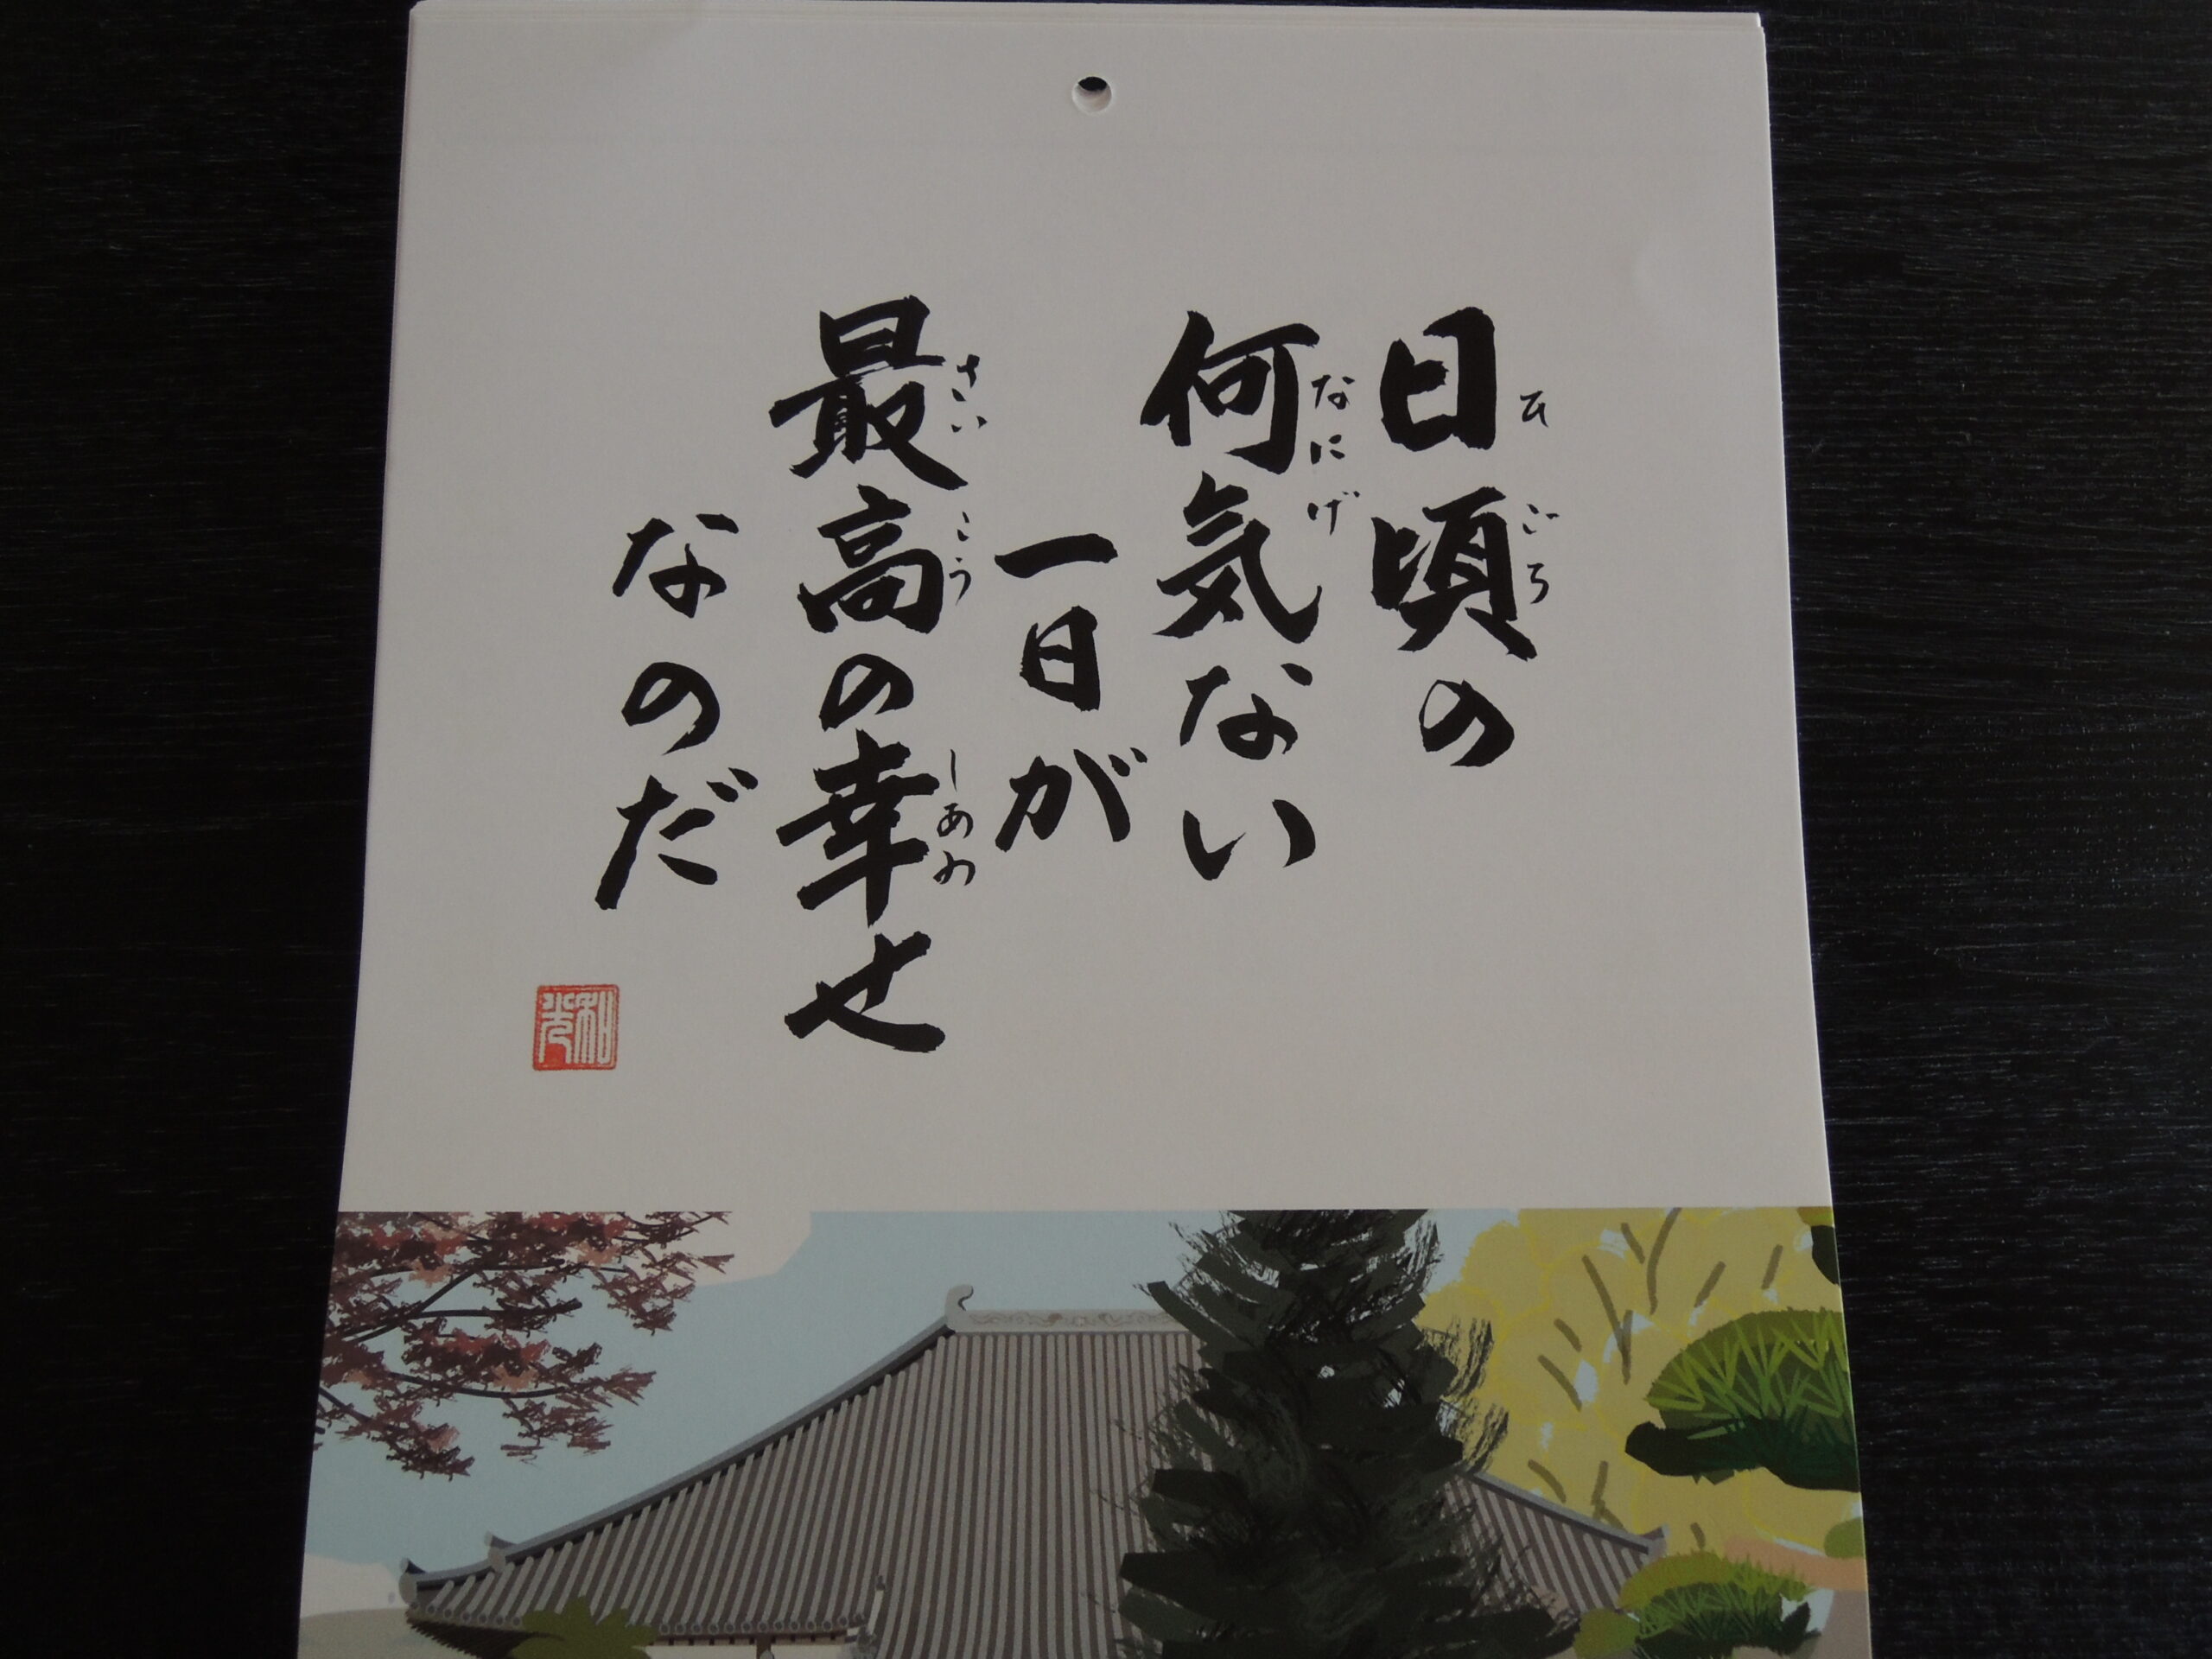 日頃の
何気ない
一日が
最高の幸せ
なのだ
ひごろ
なにげ
さいこう
しあわ